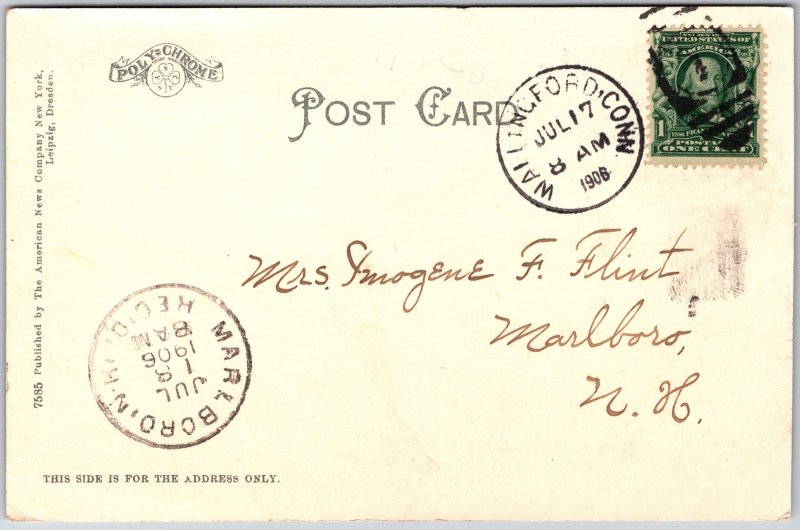 POLY-CHROME
POST CARD
WALLINGFORD, CONN.
JUL 17
8 AM
1906
UNITED STATES OF
AMERICA
1
FRANKLIN
POSTAGE
ONE CENT
Mrs. Imogene F. Flint
Marlboro,
N. H.
MARLBORO, N.H.
REC'D.
JUL
18
1906
8AM
7585 Published by The American News Company New York,
Leipzig, Dresden.
THIS SIDE IS FOR THE ADDRESS ONLY.